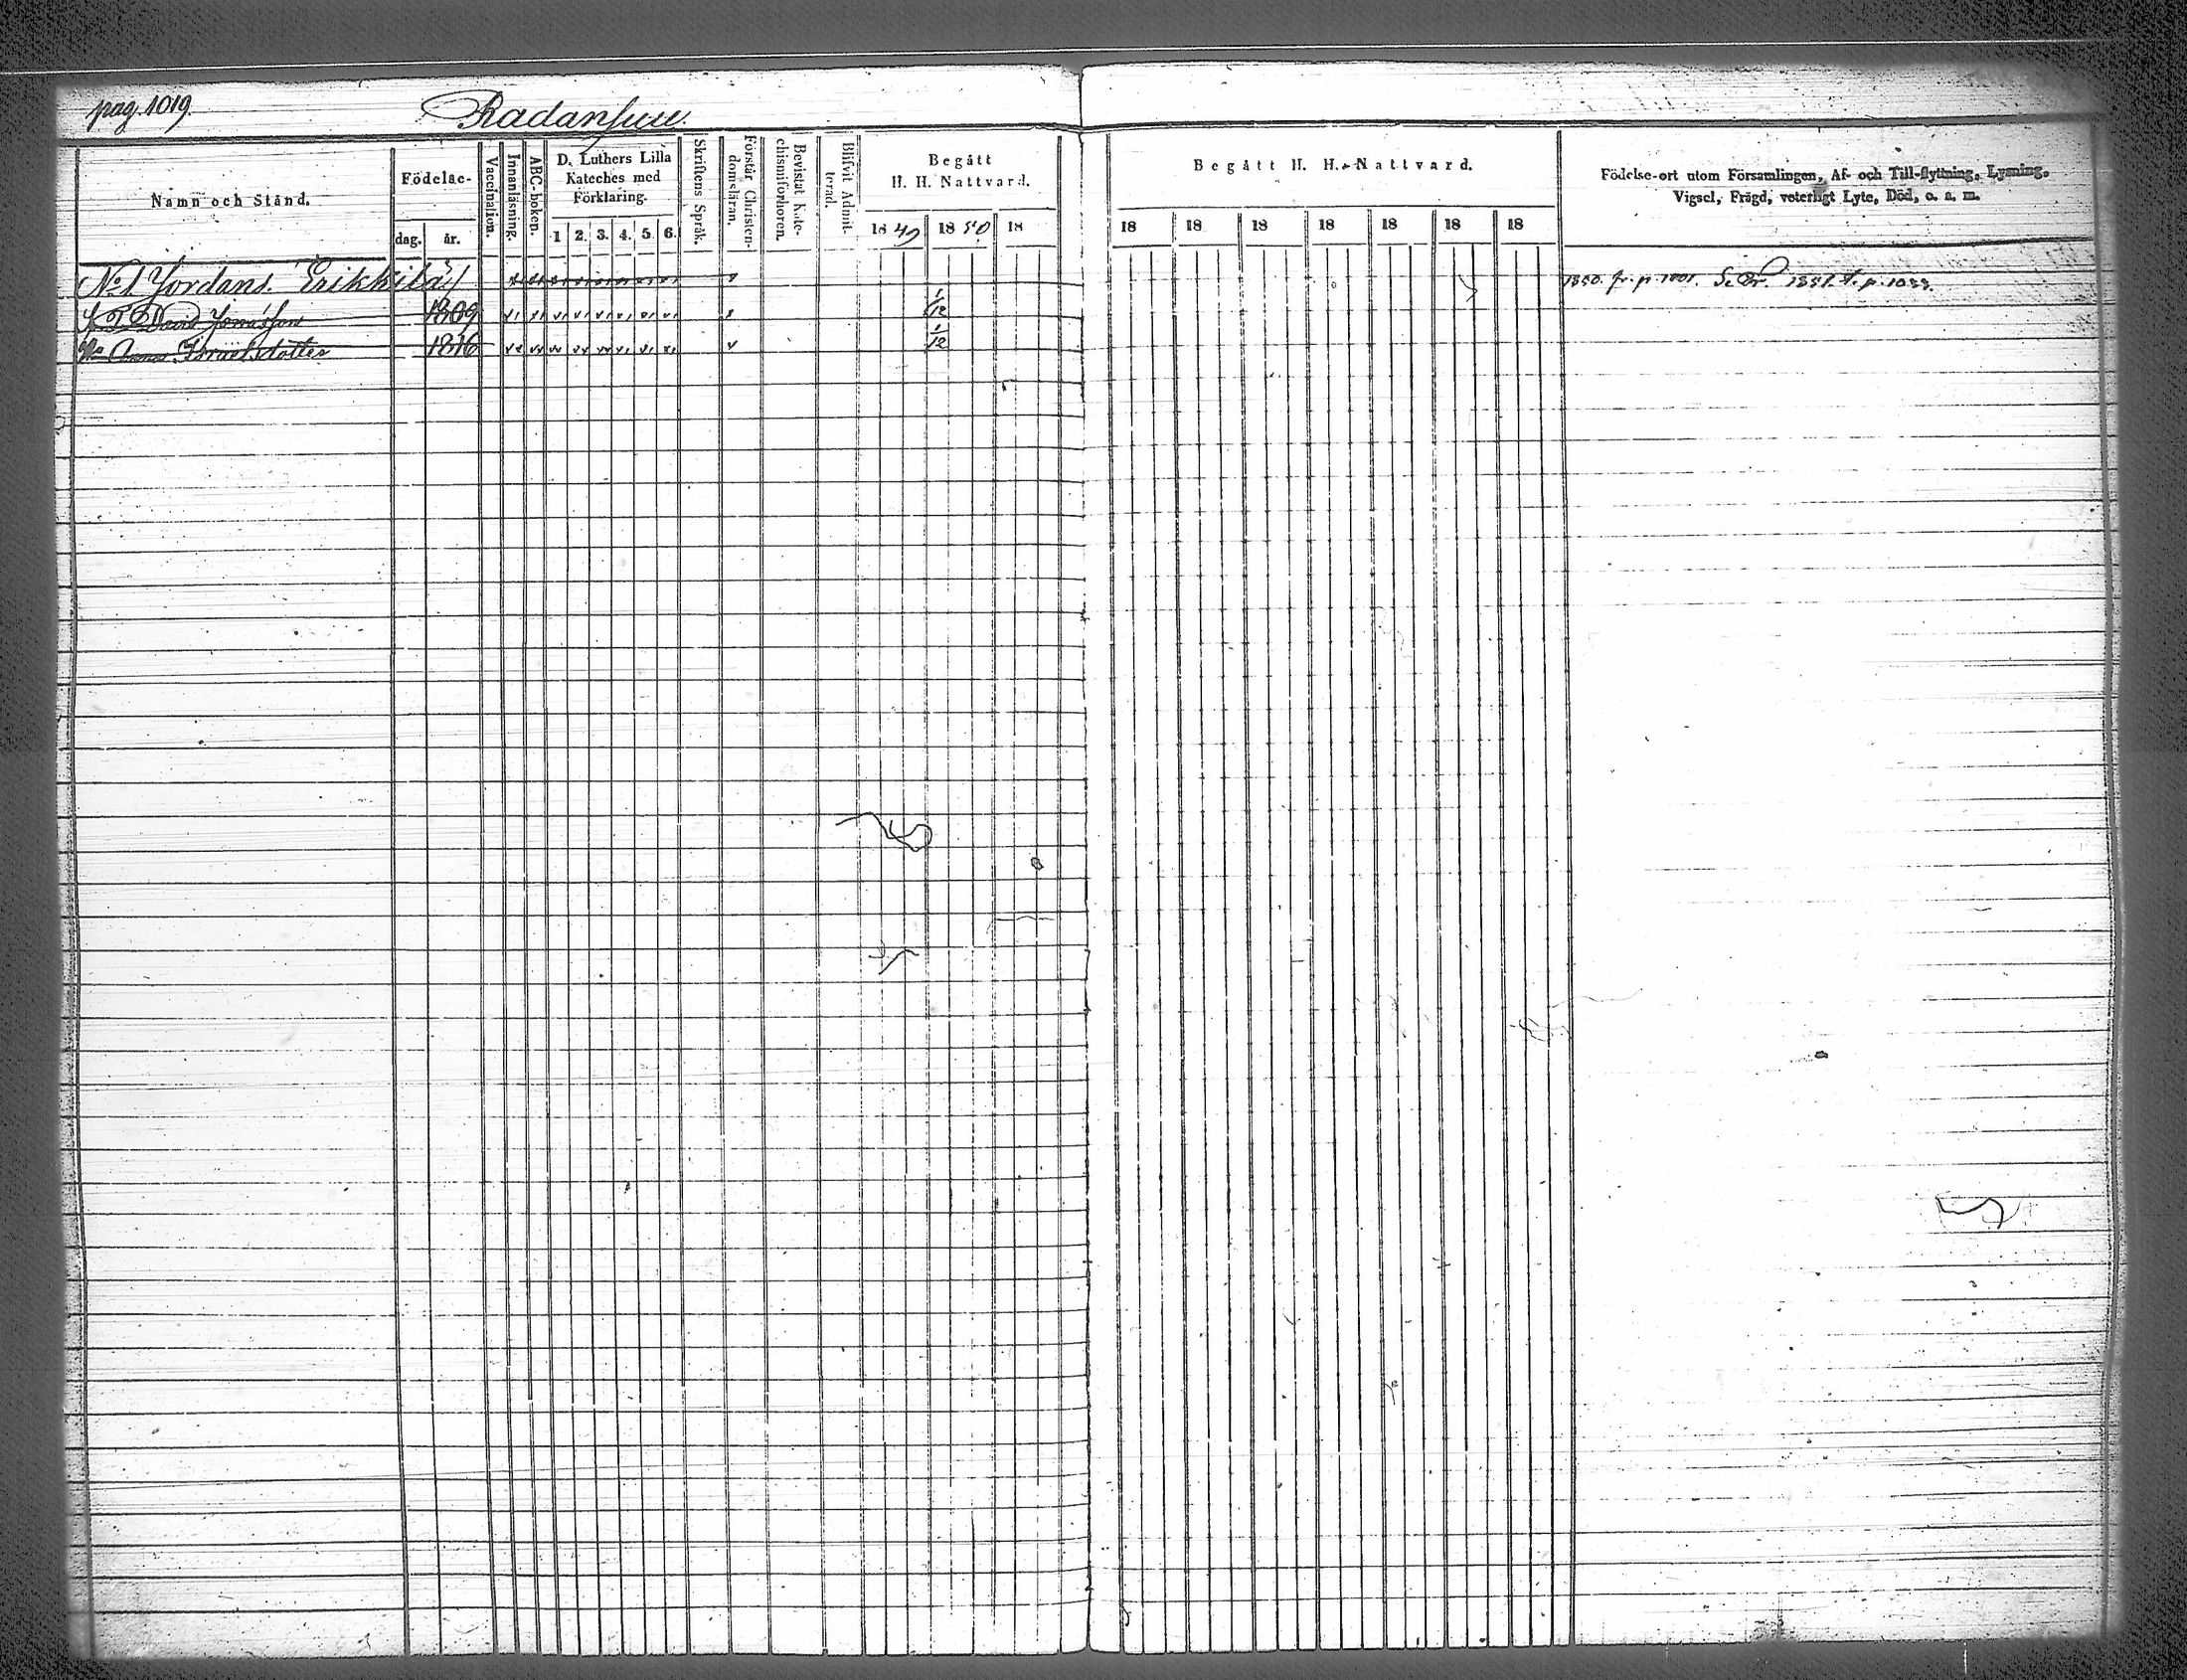 pag. 1019.
Radansuu.
Namn och Stånd.
Födelse-
dag. år.
Vaccination.
Innanläsning.
ABC-boken.
D. Luthers Lilla
Kateches med
Förklaring.
1 2. 3. 4. 5. 6.
Skriftens Språk.
Förstår Christen-
domsläran.
Bevistat Kate-
chismiförhören.
Blifvit Admit-
terad.
Begått
H. H. Nattvard.
1849 1850 18
Begått H. H. Nattvard.
18 18 18 18 18 18 18
Födelse-ort utom Församlingen, Af- och Till-flyttning, Lysning,
Vigsel, Frägd, veterligt Lyte, Död, o. s. m.
No 1 Jordans. Erikkilä 1850. fr. p. 1001. 1851. t. p. 1033.
David Jonasson 1809 1/12
Israelsdotter 1816 1/12